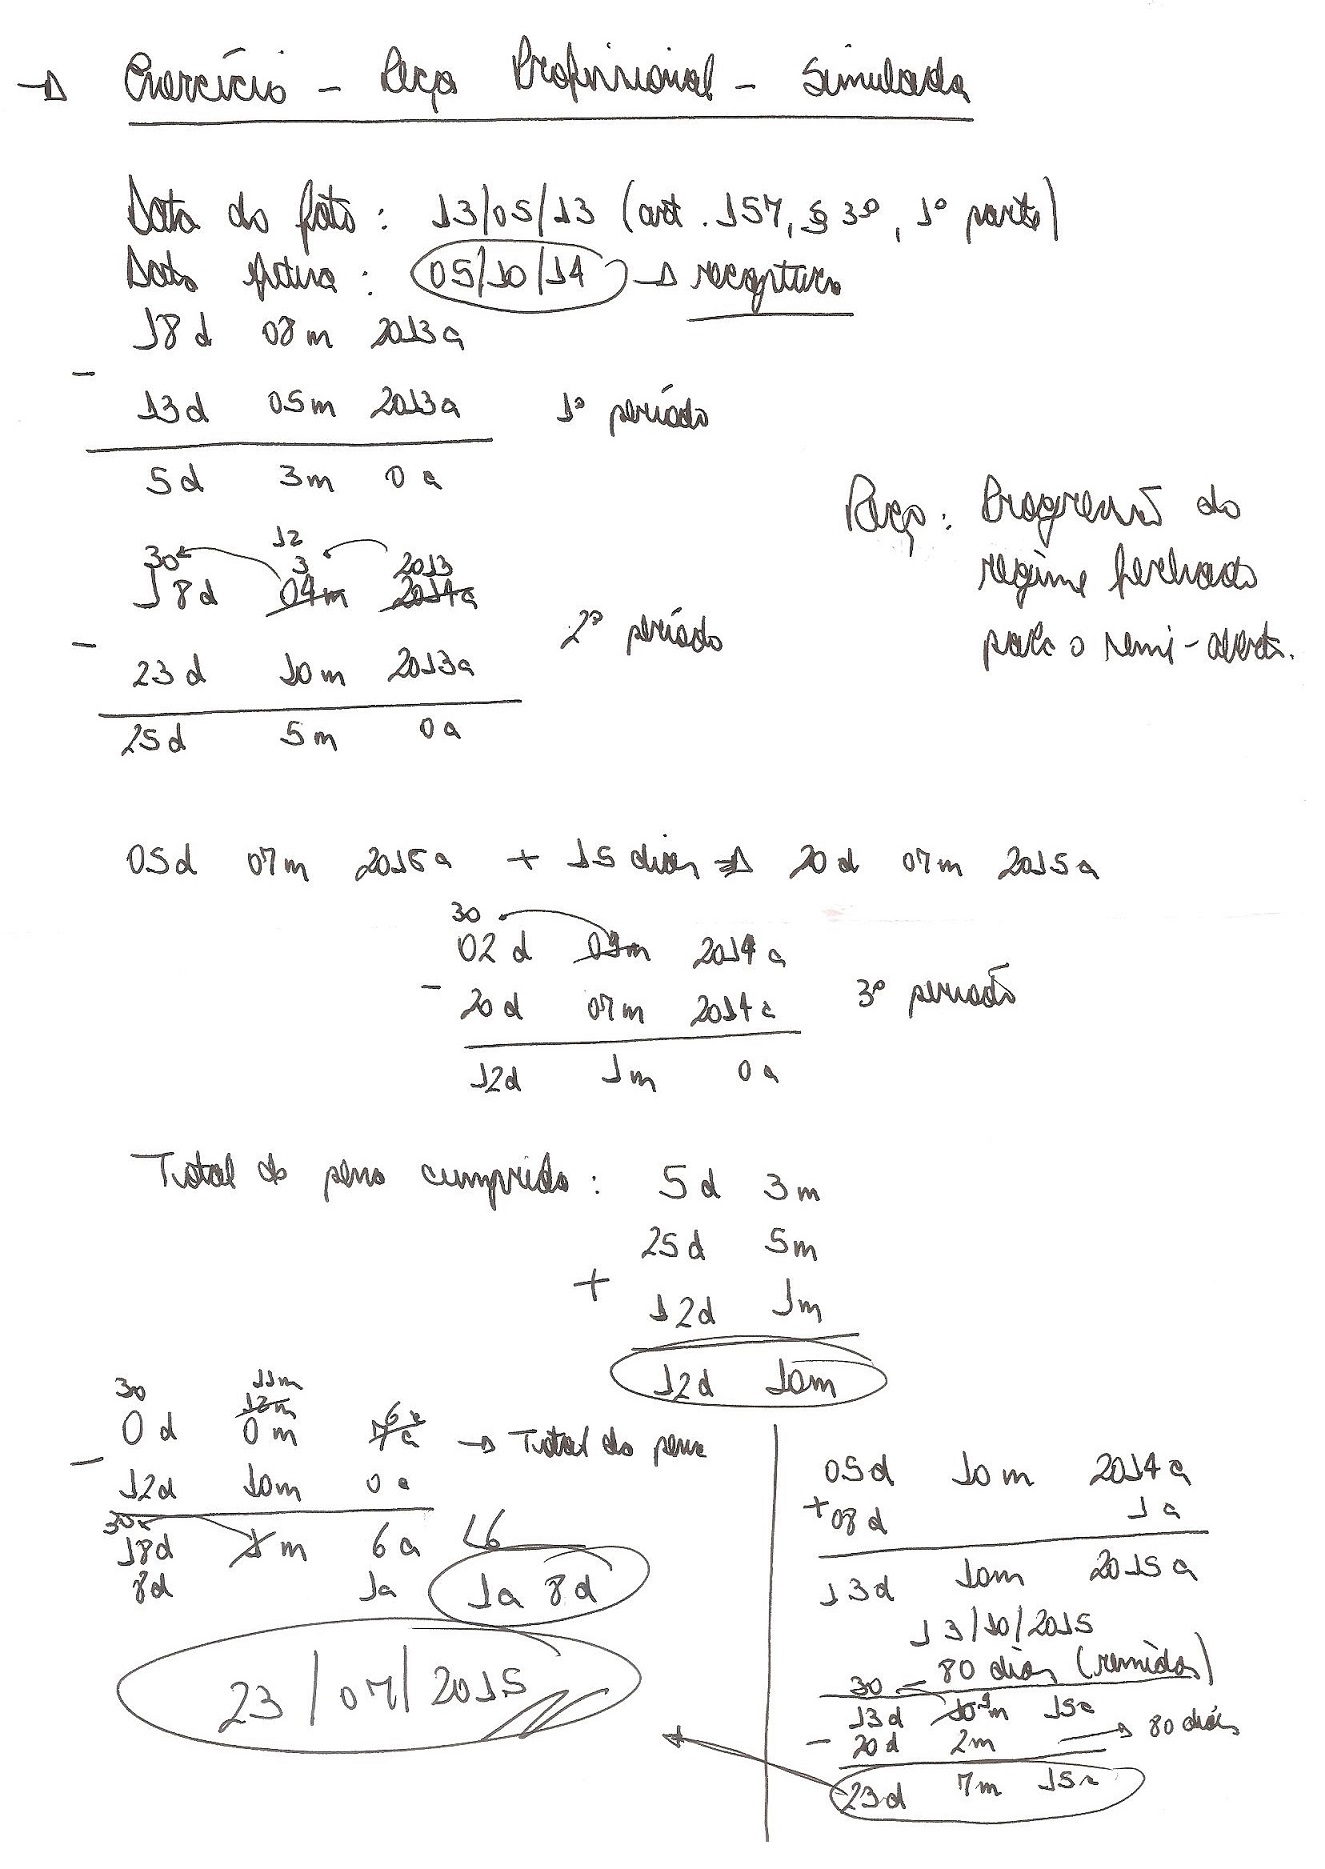 → Exercício - Peça Profissional - Simulada
Data do fato: 13/05/13 (art. 157, § 3º, 1º parte)
Data futura: 05/10/14 → recaptura
18d 08m 2013a
-
13d 05m 2013a 1º período
5d 3m 0a
Peça: Progressão do
regime fechado
para o semi-aberto.
12
30 3 2013
18d 04m 2014a
- 2º período
23d 10m 2013a
25d 5m 0a
05d 07m 2015a + 15 dias → 20d 07m 2015a
30
02d 09m 2014a
- 3º período
20d 07m 2014a
12d 1m 0a
Total de pena cumprida: 5d 3m
25d 5m
+ 12d 1m
12d 10m
30 11m
12m 6a
0d 0m 7a → Total da pena
-
12d 10m 0a
30
18d 1m 6a 6
8d 1a 1a 8d
23/07/2015
05d 10m 2014a
+08d 1a
13d 10m 2015a
13/10/2015
- 80 dias (remidos)
30
13d 10 9m 15a
- 20d 2m → 80 dias
23d 7m 15a